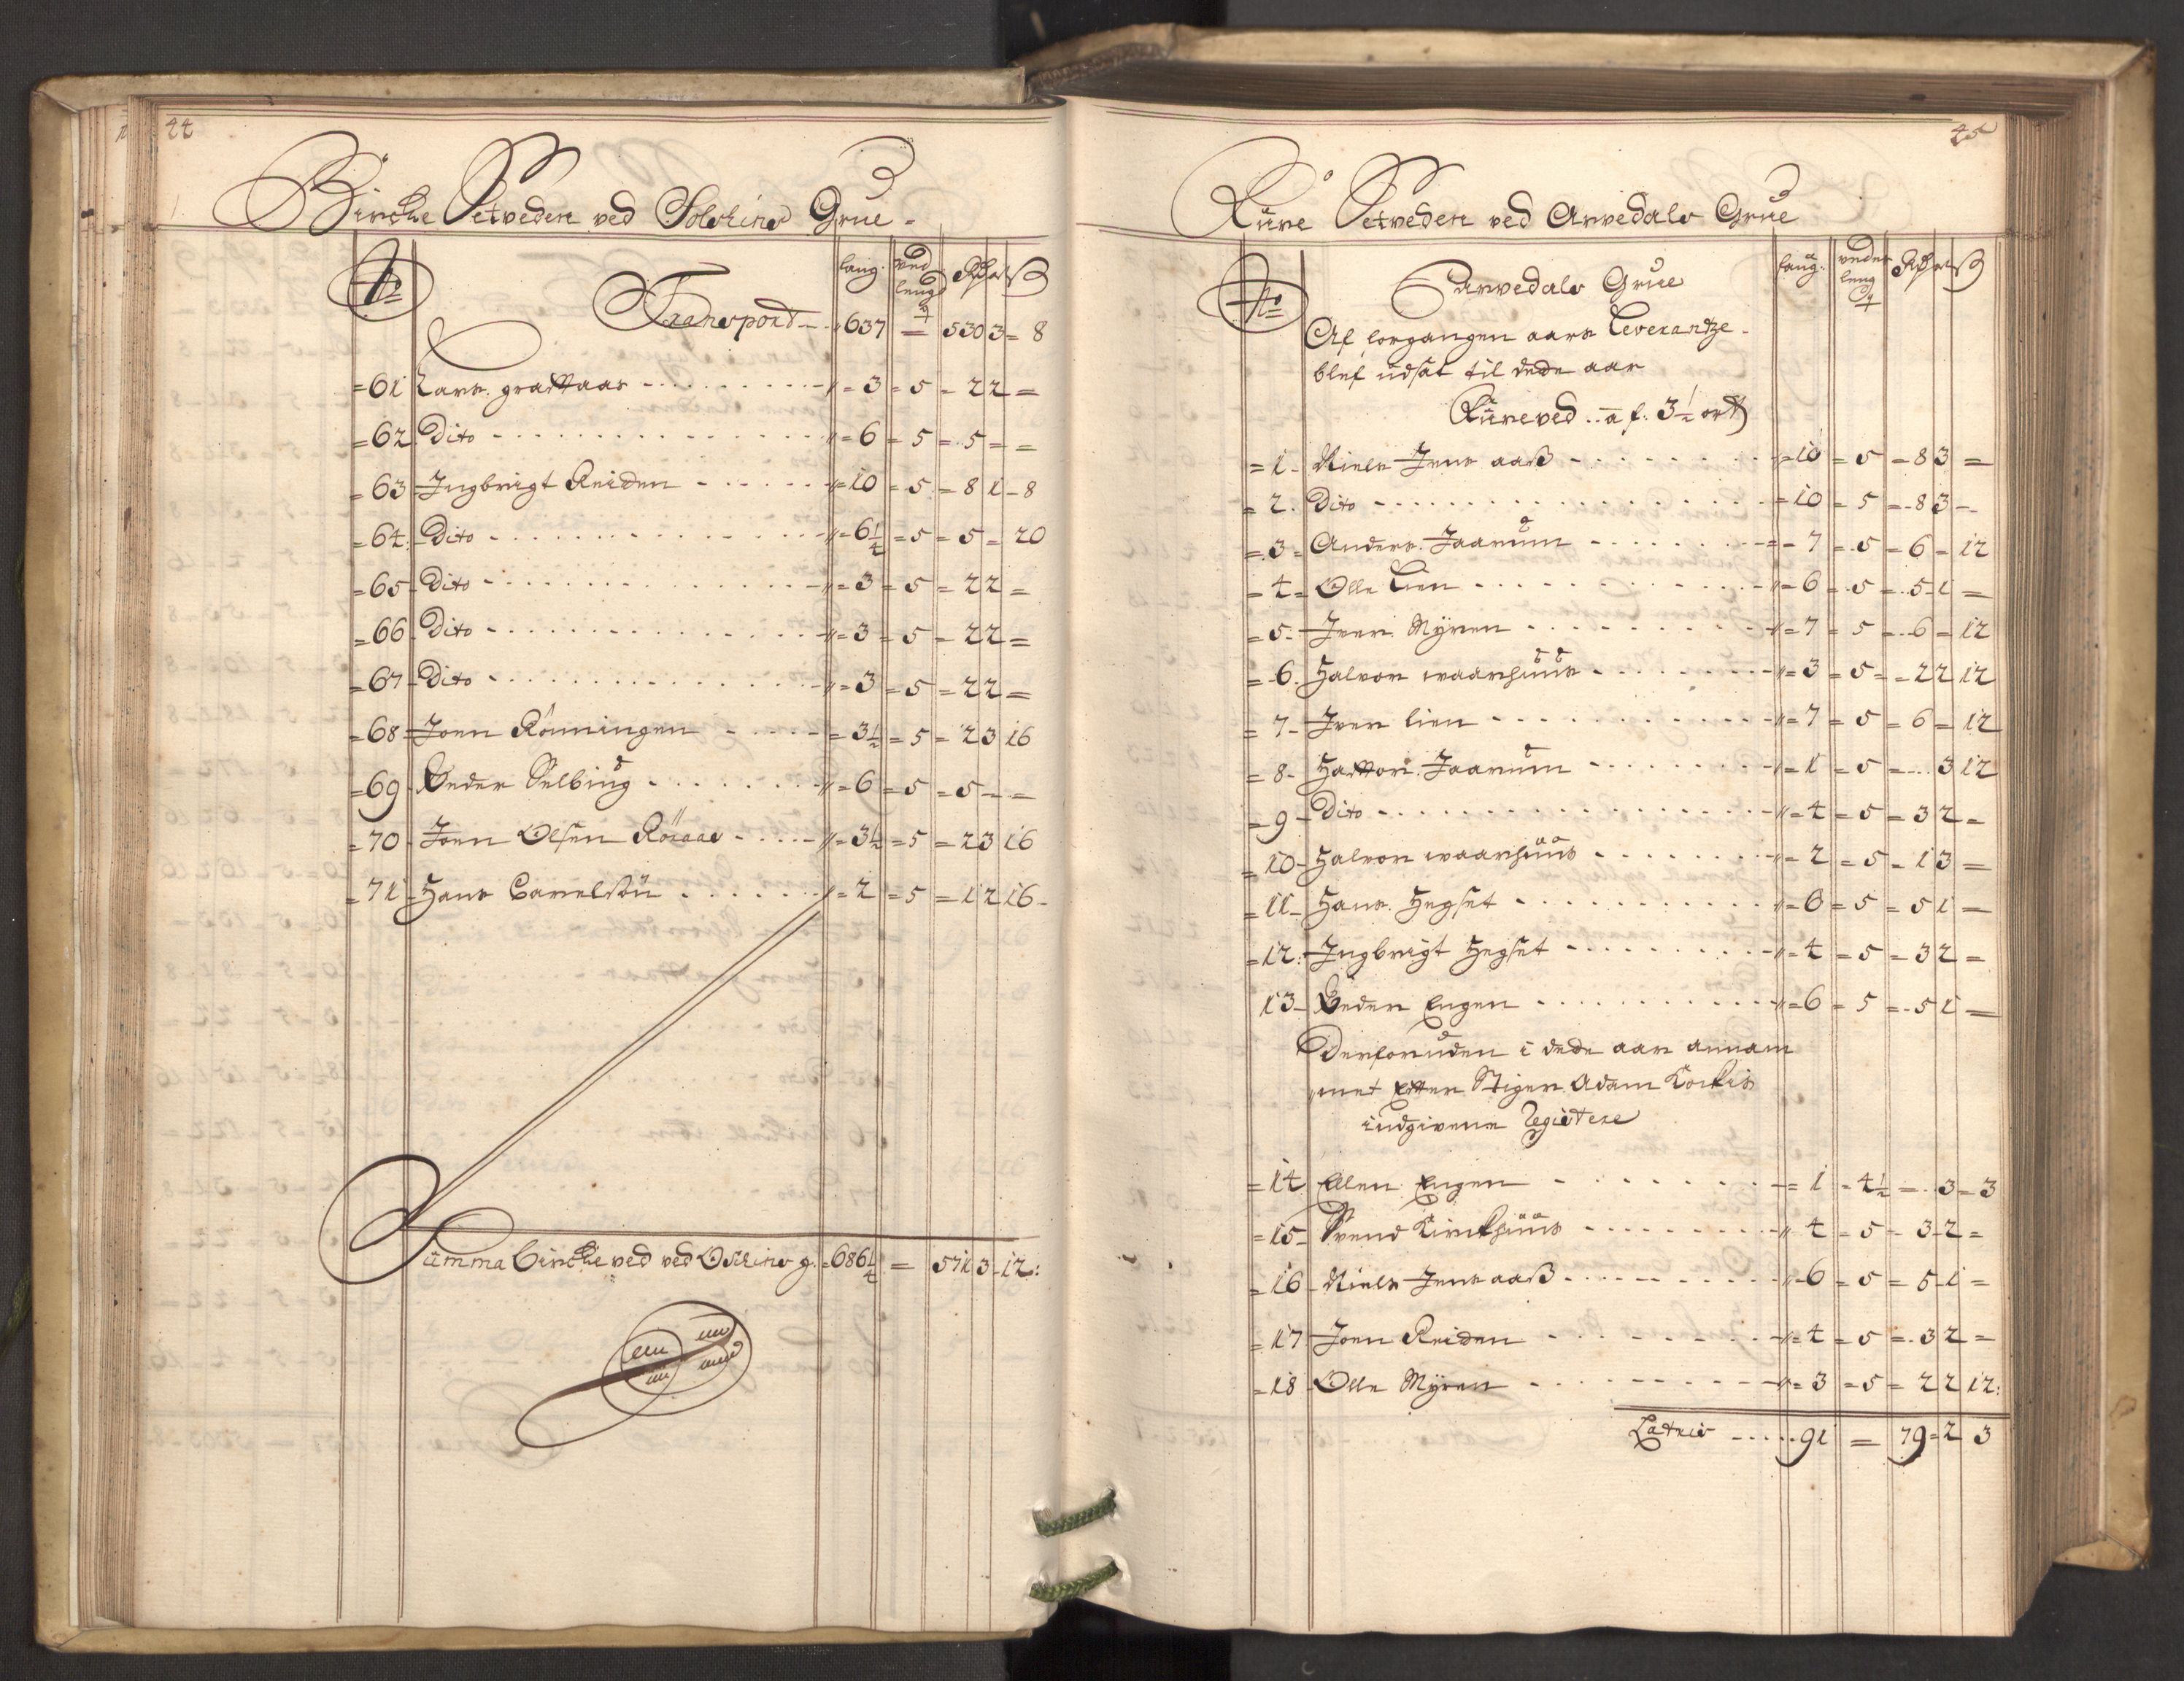 44
Bircke Setveden ved Solskins Grue
No
laug. ved leng q Rdr ort ß
Transport - 637 = 530 3 = 8
= 61 Lars grattaas - - - = 3 = 5 = 2 2 =
= 62 Dito - - - = 6 = 5 = 5 = =
= 63 Ingbrigt Reiden - - - = 10 = 5 = 8 1 - 8
= 64 Dito - - - = 6 1/4 = 5 = 5 = 20
= 65 Dito - - - = 3 = 5 = 2 2 =
= 66 Dito - - - = 3 = 5 = 2 2 =
= 67 Dito - - - = 3 = 5 = 2 2 =
= 68 Joen Rönningen - - - = 3 1/2 = 5 = 2 3 16
= 69 Peder Selbing - - - = 6 = 5 = 5 - =
= 70 Joen Olsen Röraas - - - = 3 1/2 = 5 = 2 3 16
= 71 Hans - - - = 2 = 5 = 1 2 16 -
Summa bircke ved ved g. = 686 1/4 = 571 3 - 12:
45
Kure Setveden ved Arvedals Grue
No
laug: veder leng q Rdr ort ß
Arvedals Grue
Af forgangen aars Leverantze
blef udsat til dede aar
Kureved .. a f: 3 1/2 ort
= 1 - Niels Jens aaß - - - = 10 = 5 = 8 3 =
= 2. Dito - - - = 10 = 5 = 8 3 -
= 3 - Anders Jaarum - - - = 7 = 5 = 6 = 12
= 4 = Olle Lien - - - = 6 = 5 = 5 1 =
= 5 - Iver Myren - - - = 7 = 5 = 6 = 12
= 6. Halvor waarhuus - - - = 3 = 5 = 2 2 12
= 7 - Iver lien - - - = 7 = 5 = 6 = 12
= 8 - Hattor Jaarum - - - = 1 = 5 = 3 12
= 9 - Dito - - - = 4 = 5 = 3 2 =
= 10 - Halvor waarhuus - - - = 2 = 5 = 1 3 =
= 11 - Hans Hegset - - - = 6 = 5 = 5 1 =
= 12: Ingbrigt Hegset - - - = 4 = 5 = 3 2 =
13 - Peder Engen - - - = 6 = 5 = 5 1 =
Derforuden i dede aar annam
met Efter Stiger Adam
indgivene Registere
= 14 Ellen Engen - - - = 1 = 4 1/2 = 3 - 3
= 15 - Svend Kirckhuus - - - 4 = 5 = 3 - 2 =
= 16 - Niels Jens aaß - - - 6 = 5 = 5 - 1 =
= 17 - Joen Reiden - - - = 4 = 5 = 3 2 =
= 18 - Olle Myren - - - = 3 = 5 = 2 2 12:
Latris - - - 91 = 79 = 2 3